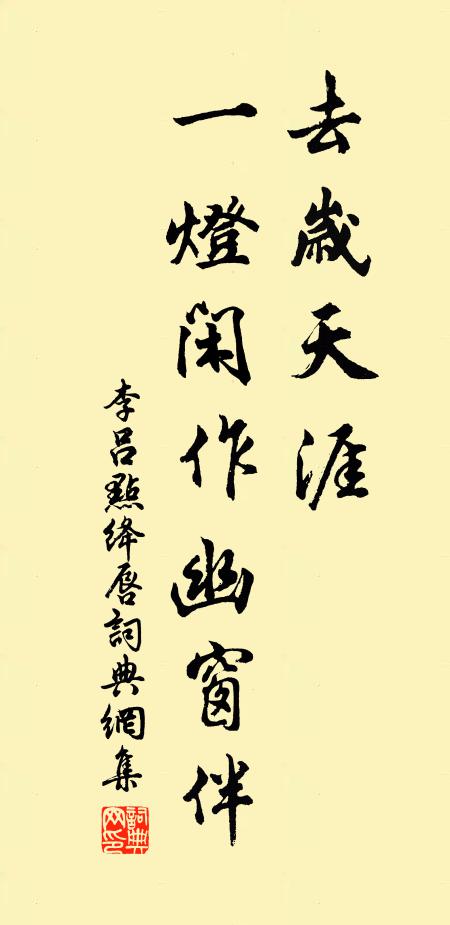 去歲天涯
一燈閑作幽窗伴
李呂點絳唇詞典網集
詞典網印